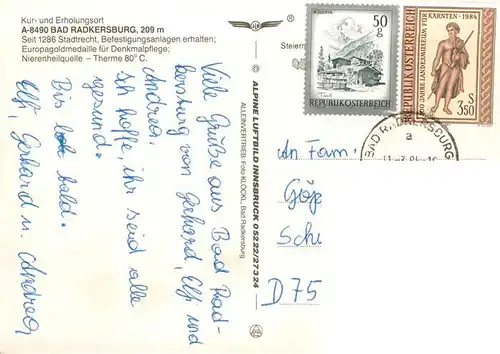 Kur- und Erholungsort
A-8490 BAD RADKERSBURG, 209 m
Seit 1286 Stadtrecht, Befestigungsanlagen erhalten;
Europagoldmedaille für Denkmalpflege;
Nierenheilquelle – Therme 80° C.
®
Steier
50
g
REPUBLIK ÖSTERREICH
KÄRNTEN · 1984
100 JAHRE LANDESMUSEUM FÜR
REPUBLIK ÖSTERREICH
S
3,50
BAD RADKERSBURG
a
© ALPINE LUFTBILD INNSBRUCK 0 52 22/27 3 24
ALLEINVERTRIEB: Foto KLÖCKL, Bad Radkersburg
Viele Grüße aus Bad Rad-
kersburg von Gerhard, Elf und
Andrea.
Ich hoffe, ihr seid alle
gesund.
Bis bald.
Elf, Gerhard u. Andrea
An Fam.
Göp
Sch
D 75